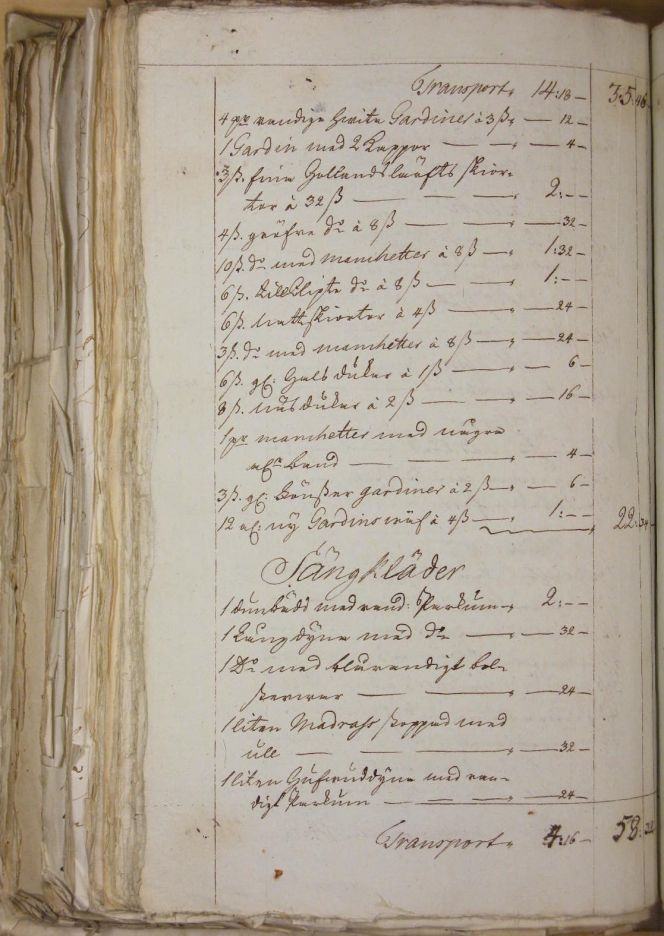 Transport„ 14:18 — 35:46
4 pr randige hwita Gardiner à 3ß„ — 12 —
1 Gardin med 2 Kappor — „ — 4 —
3 ß. fina Hollandslärfts skior-
tor à 32 ß — — „ 2:- -
4 ß. gröfre do à 8 ß — — „ — 32 —
10 ß. do med manchetter à 8 ß —„ 1:32 —
6 ß. do à 8 ß — — „ 1:- -
6 ß. nattskiortor à 4 ß — „ — 24 —
3 ß. do med manchetter à 8 ß —„ — 24 —
6 ß. gl: Halsdukar à 1 ß — „ — 6 —
8 ß. näsdukar à 2 ß — — „ — 16 —
1 pr manchetter med några
band — — „ — 4 —
3 ß. gl: gardiner à 2 ß —„ — 6 —
12 al: ny Gardinswäf à 4 ß —„ 1:- - 22:34
Sängkläder
1 dunbädd med rand: Parkum —„ 2:- -
1 Långdyna med do — „ — 32 —
1 Do med blårandigt bol-
sterwar — — „ — 24 —
1 liten Madrass stoppad med
ull — — „ — 32 —
1 liten Hufwuddyna med ran-
digt Parkum — — — „ — 24 —
Transport„ 4:16 — 58:32